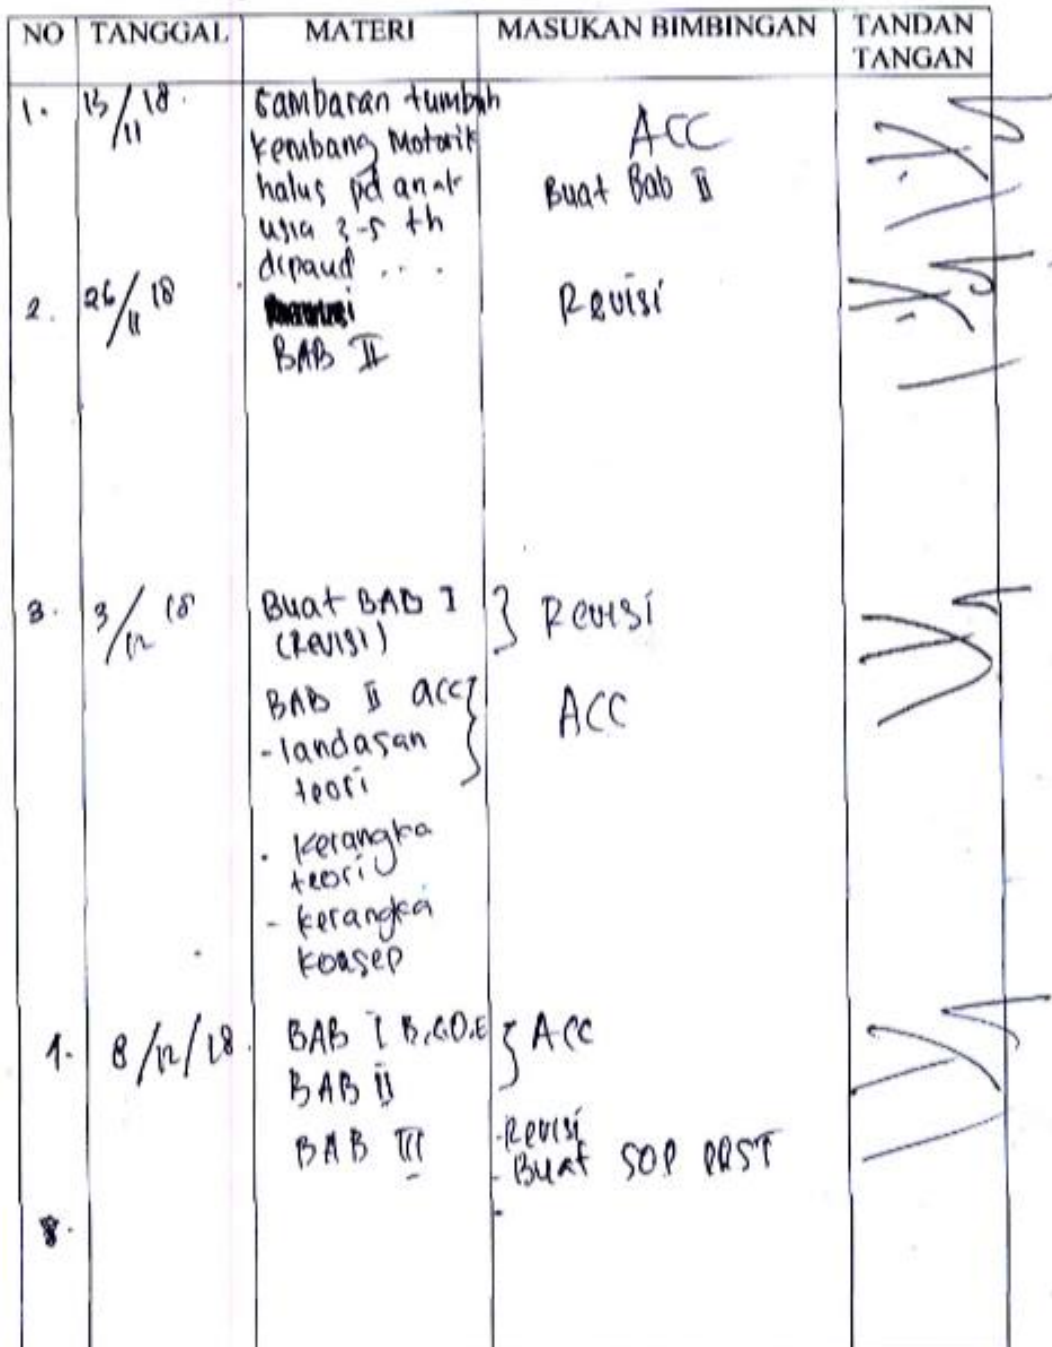 NO TANGGAL MATERI MASUKAN BIMBINGAN TANDAN TANGAN
1. 13/11 18. Gambaran tumbuh
kembang Motorik
halus pd anak
usia 3-5 th
dipaud ....
ACC
Buat Bab II
2. 26/11 18
BAB II
Revisi
3. 3/12 18 Buat BAB I
(Revisi)
} Revisi
BAB II acc
- landasan
teori
} ACC
- kerangka
teori
- kerangka
konsep
4. 8/12/18. BAB I B,C,D,E
BAB II
} ACC
BAB III
- Revisi
- Buat SOP
-